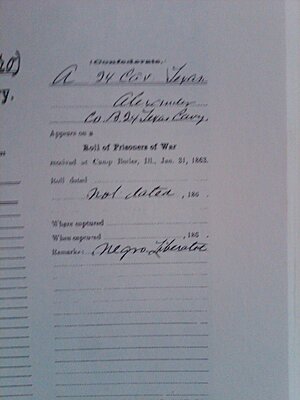 (Confederate.)
A 24 Cav Texas.
Alexander
Co. B. 24 Texas Cavy.
Appears on a
Roll of Prisoners of War
received at Camp Butler, Ill., Jan. 31, 1863.
Roll dated
Not dated, 186 .
Where captured
When captured , 186 .
Remarks: Negro Liberated